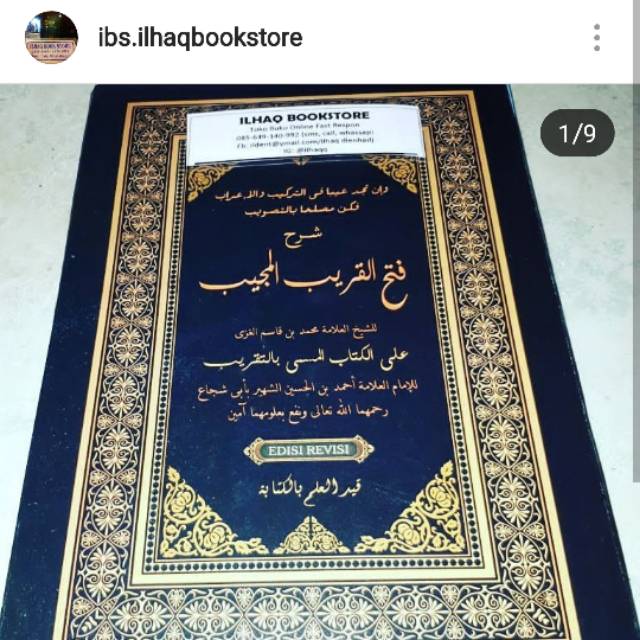 ibs.ilhaqbookstore
1/9
ILHAQ BOOKSTORE
Toko Buku Online Fast Respon
085-649-140-992 (sms, call, whassap)
IG : @ilhaqq
وإن تجد عيبا في التركيب والإعراب
فكن مصلحا بالتصويب
شرح
فتح القريب المجيب
للشيخ العلامة محمد بن قاسم الغزى
على الكتاب المسمى بالتقريب
للإمام العلامة أحمد بن الحسين الشهير بأبى شجاع
رحمهما الله تعالى ونفع بعلومهما آمين
EDISI REVISI
قيد العلم بالكتابة